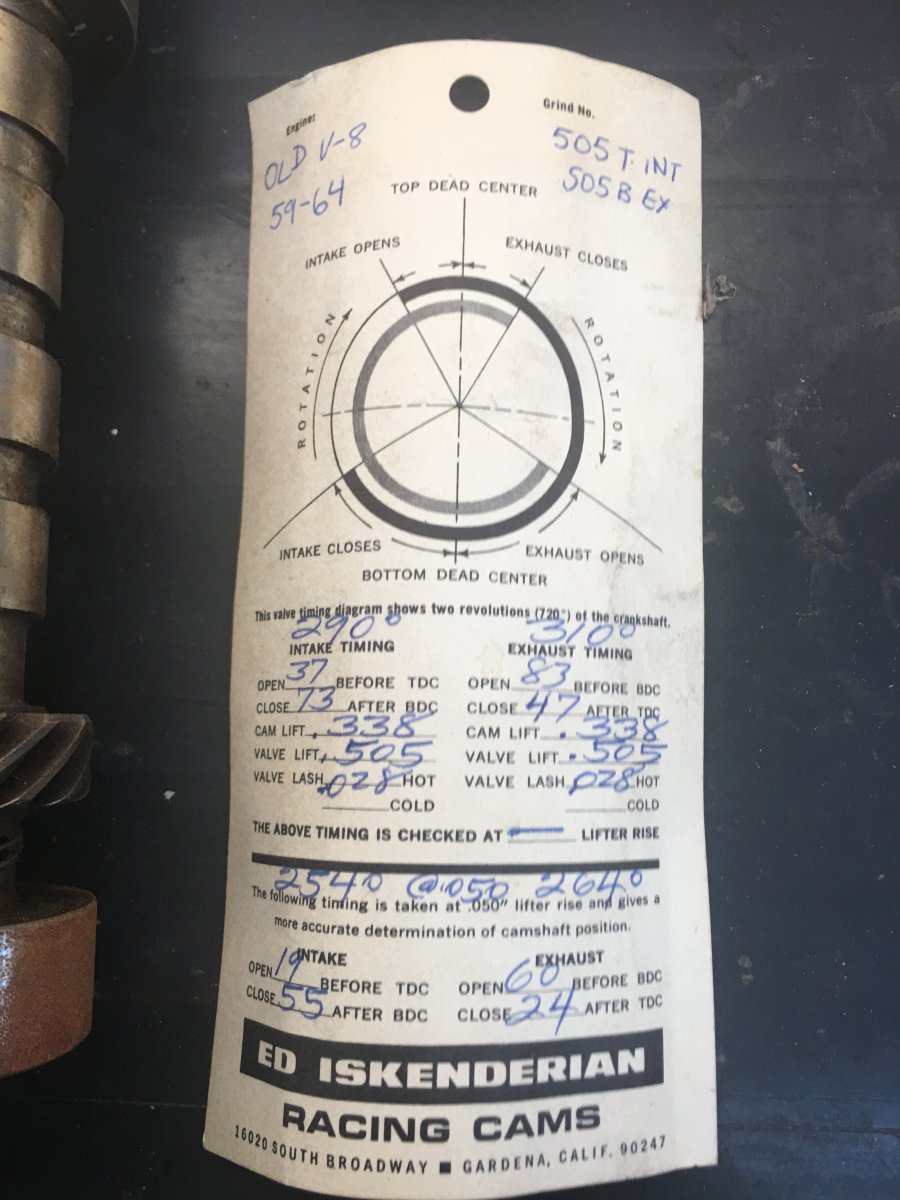 Engine: Grind No.
OLD V-8 505 T. INT
59-64 505 B EX
TOP DEAD CENTER
INTAKE OPENS EXHAUST CLOSES
ROTATION ROTATION
INTAKE CLOSES EXHAUST OPENS
BOTTOM DEAD CENTER
This valve timing diagram shows two revolutions (720°) of the crankshaft.
290° 310°
INTAKE TIMING EXHAUST TIMING
OPEN 37 BEFORE TDC OPEN 83 BEFORE BDC
CLOSE 73 AFTER BDC CLOSE 47 AFTER TDC
CAM LIFT .338 CAM LIFT .338
VALVE LIFT .505 VALVE LIFT .505
VALVE LASH .028 HOT VALVE LASH .028 HOT
COLD COLD
THE ABOVE TIMING IS CHECKED AT — LIFTER RISE
254° @.050 264°
The following timing is taken at .050" lifter rise and gives a
more accurate determination of camshaft position.
INTAKE EXHAUST
OPEN 19 BEFORE TDC OPEN 60 BEFORE BDC
CLOSE 55 AFTER BDC CLOSE 24 AFTER TDC
ED ISKENDERIAN
RACING CAMS
16020 SOUTH BROADWAY ■ GARDENA, CALIF. 90247